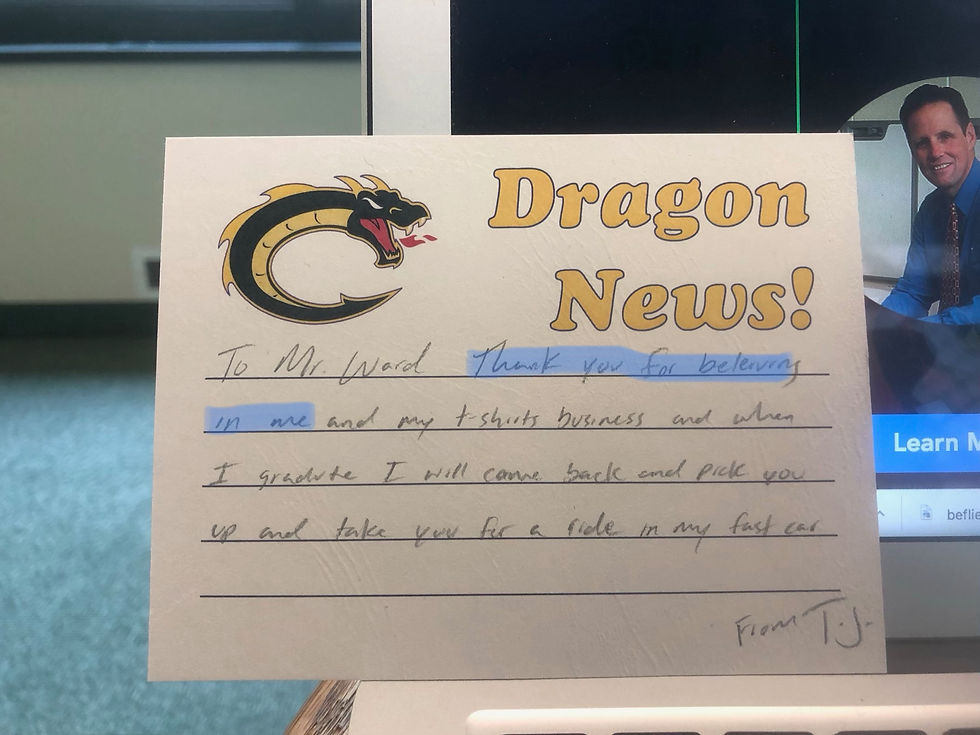 Dragon
News!
To Mr. Ward Thank you for beleiving
in me and my t-shirts business and when
I gradute I will come back and pick you
up and take you for a ride in my fast car
From T.J.
Learn M
beflie